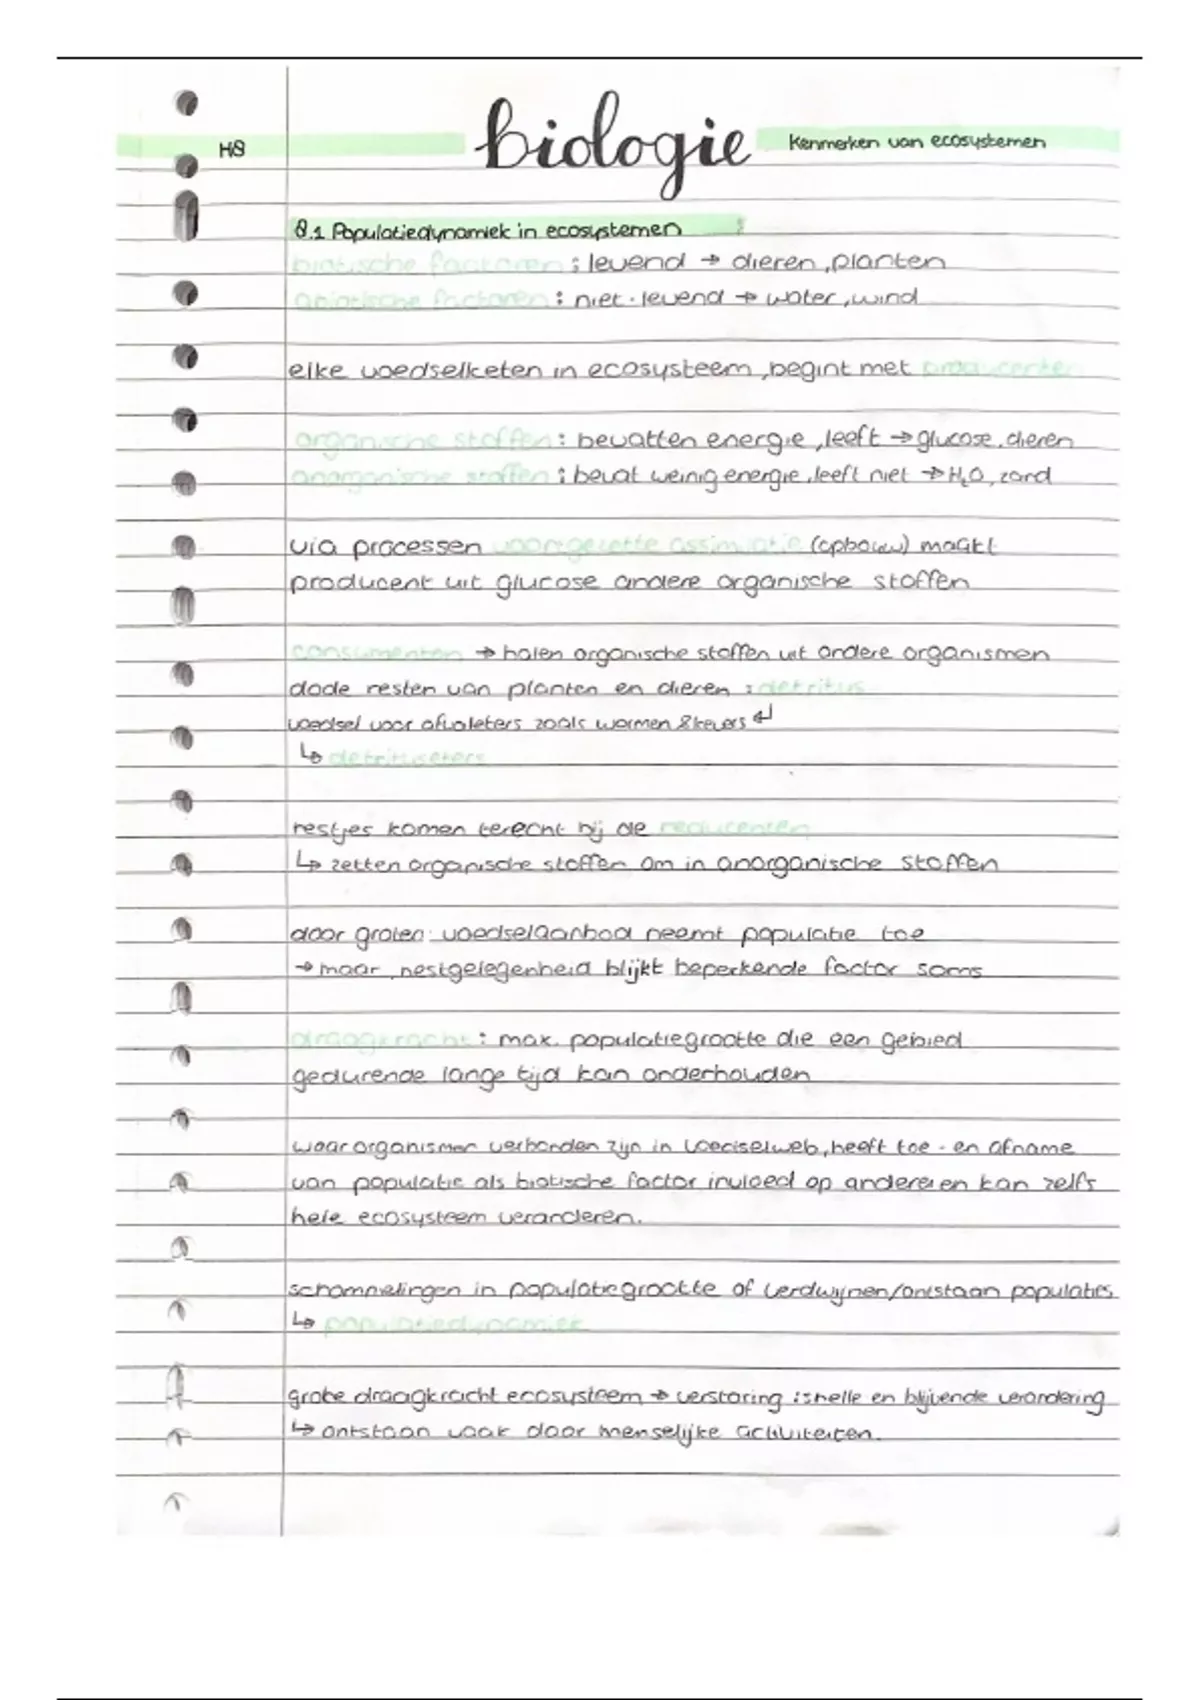 H8
biologie
Kenmerken van ecosystemen
8.1 Populatiedynamiek in ecosystemen
biotische factoren : levend → dieren, planten
abiotische factoren : niet-levend → water, wind
elke voedselketen in ecosysteem, begint met producenten
organische stoffen : bevatten energie, leeft → glucose, dieren
anorganische stoffen : bevat weinig energie, leeft niet → H₂O, zand
via processen voortgezette assimilatie (opbouw) maakt
producent uit glucose andere organische stoffen
consumenten → halen organische stoffen uit andere organismen
dode resten van planten en dieren : detritus
voedsel voor afvaleters zoals wormen & kevers ↲
↳ detrituseters
restjes komen terecht bij de reducenten
↳ zetten organische stoffen om in anorganische stoffen
door groter voedselaanbod neemt populatie toe
→ maar, nestgelegenheid blijkt beperkende factor soms
draagkracht : max. populatiegrootte die een gebied
gedurende lange tijd kan onderhouden
waar organismen verbonden zijn in voedselweb, heeft toe- en afname
van populatie als biotische factor invloed op andere en kan zelfs
hele ecosysteem veranderen.
schommelingen in populatiegrootte of verdwijnen/ontstaan populaties
↳ populatiedynamiek
grote draagkracht ecosysteem → verstoring : snelle en blijvende verandering
↳ ontstaan vaak door menselijke activiteiten.